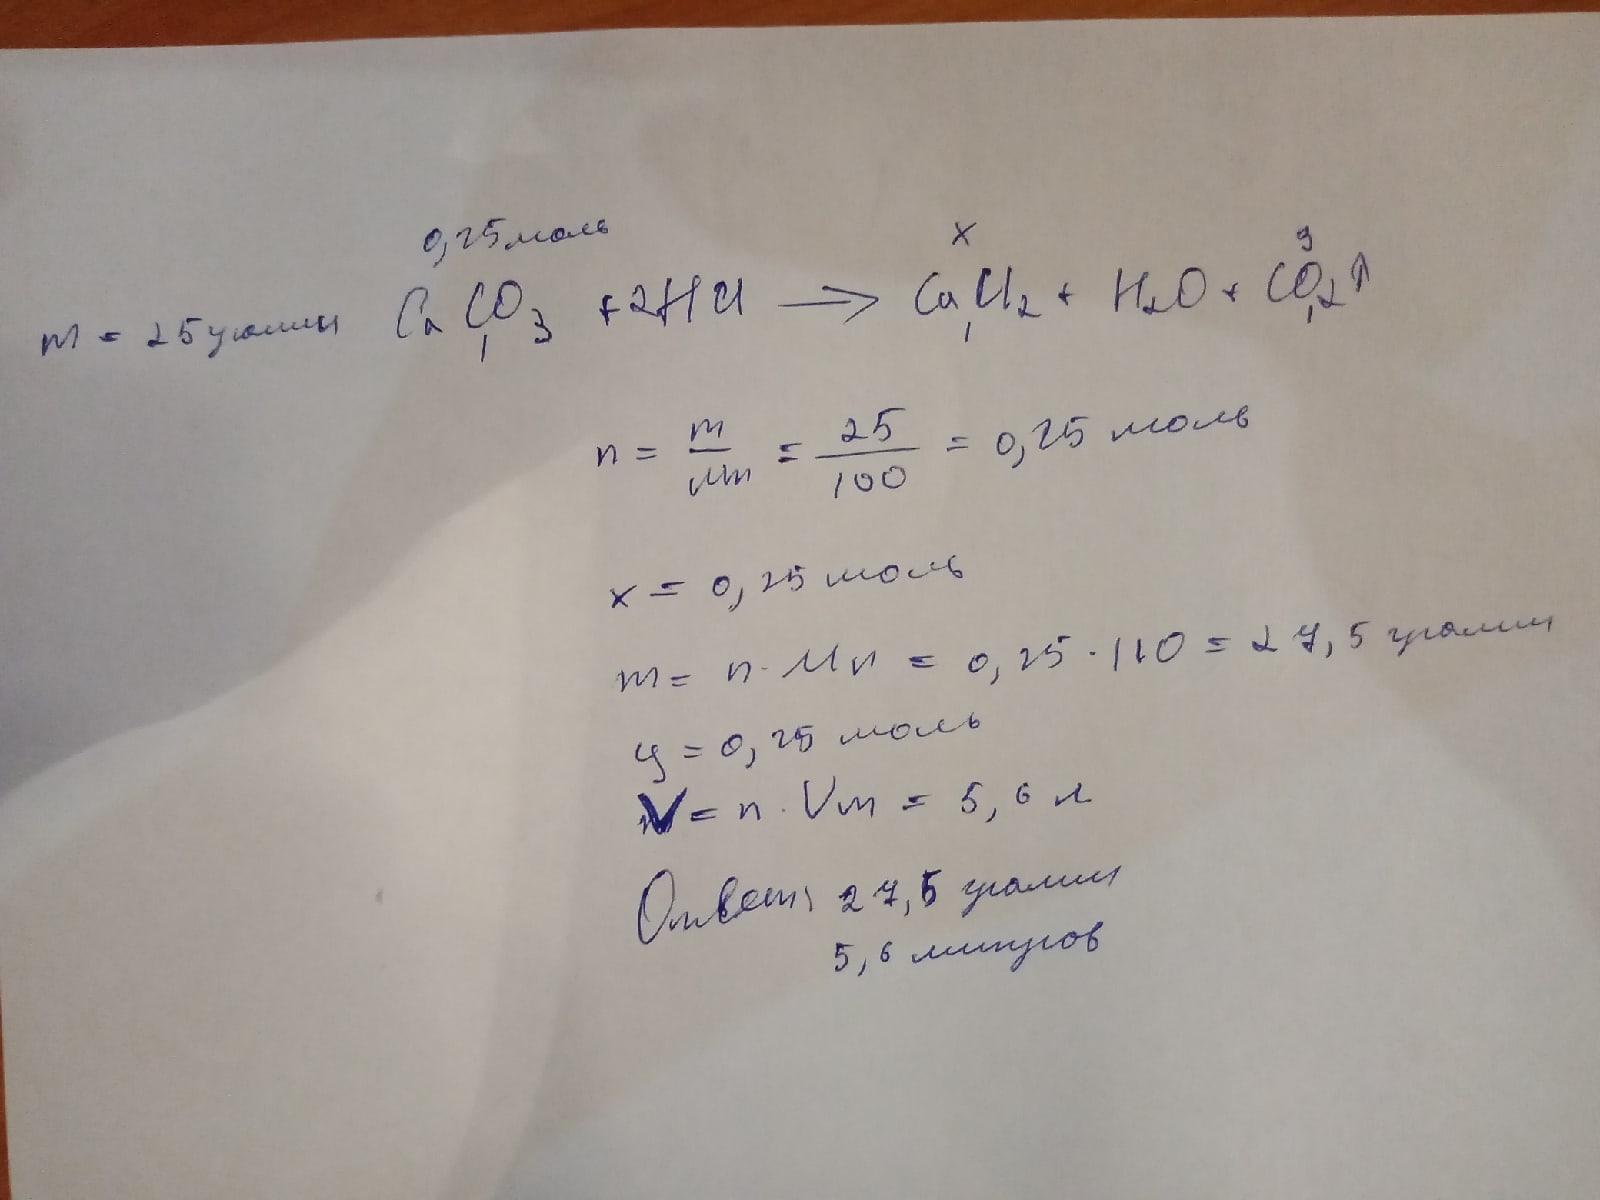 0,25 моль x y
m = 25 грамм CaCO3 + 2HCl → CaCl2 + H2O + CO2↑
1 1 1
n = m/Mm = 25/100 = 0,25 моль
x = 0,25 моль
m = n · Mn = 0,25 · 110 = 27,5 грамм
y = 0,25 моль
V = n · Vm = 5,6 л
Ответ: 27,5 грамм
5,6 литров